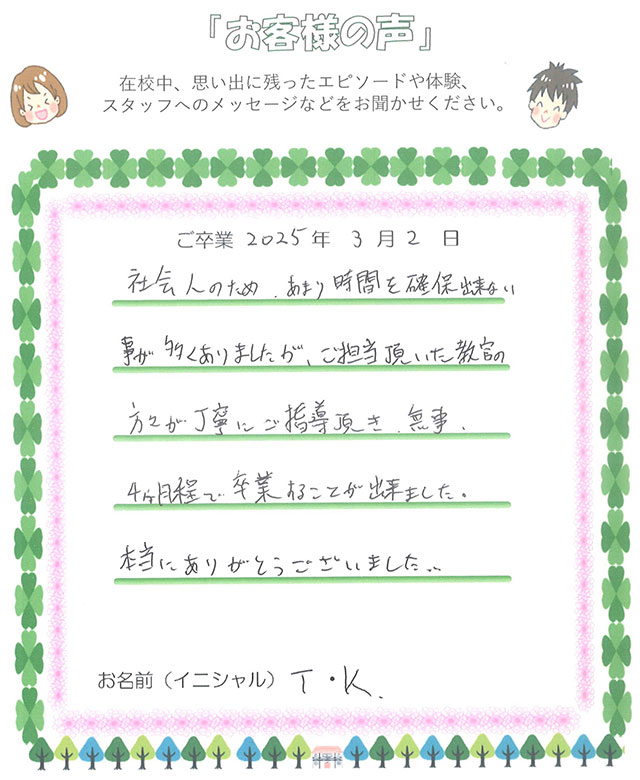 「お客様の声」
在校中、思い出に残ったエピソードや体験、
スタッフへのメッセージなどをお聞かせください。
ご卒業 2025年 3月2日
社会人のため、あまり時間を確保出来ない
事が多くありましたが、ご担当頂いた教官の
方々が丁寧にご指導頂き、無事、
4ヶ月程で卒業することが出来ました。
本当にありがとうございました。
お名前(イニシャル) T・K.